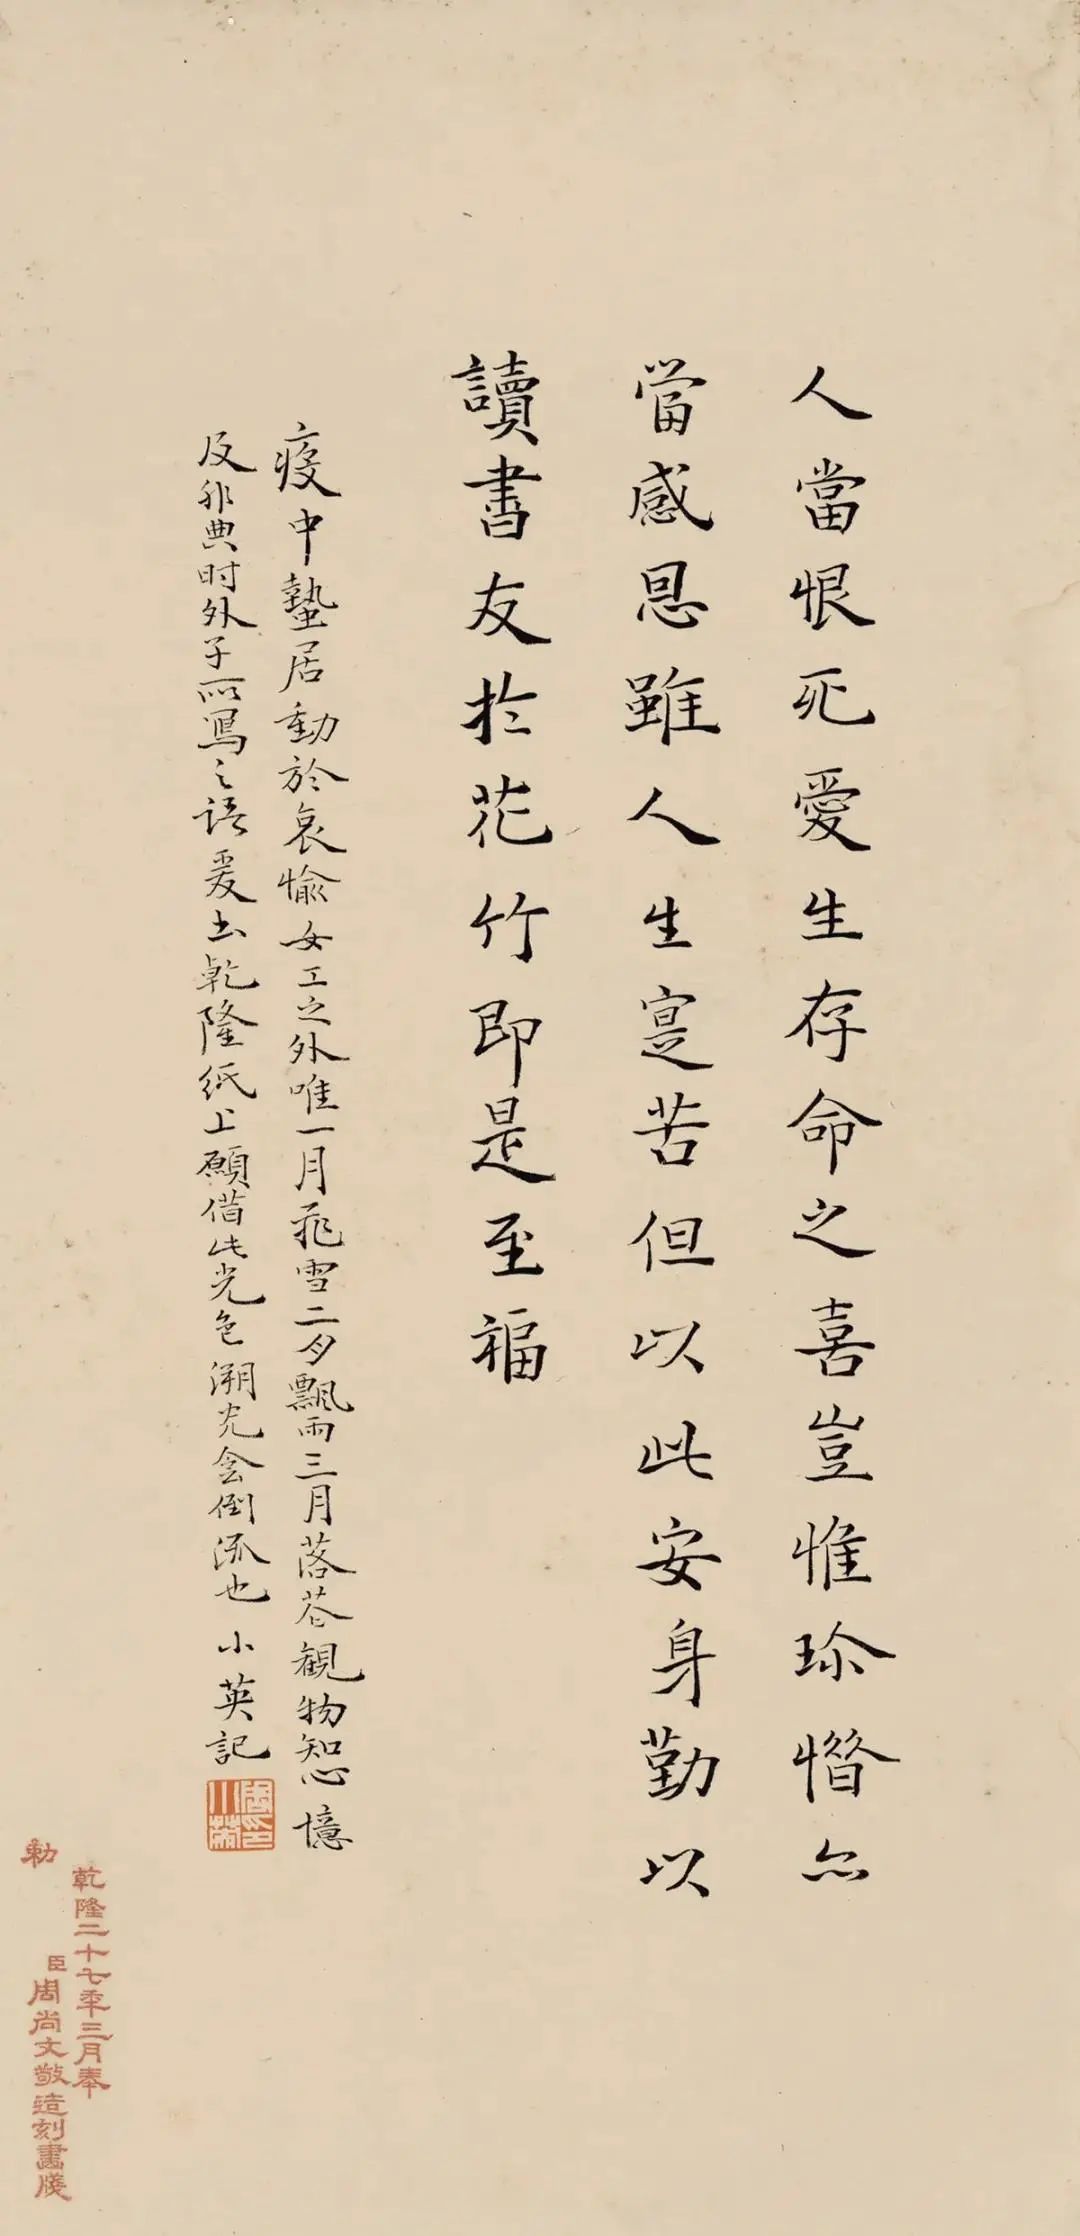 人當恨死愛生存命之喜豈惟珎惜亦
當感恩雖人生寔苦但以此安身勤以
讀書友於花竹即是至福
疫中蟄居動於哀愉女工之外唯一月飛雪二夕飄雨三月落花觀物知心憶
及非典时外子所寫之語爰書乾隆紙上願借此光色溯光陰倒流也 小英記
乾隆二十七年三月奉
勅
臣周尚文敬造刻畫牋